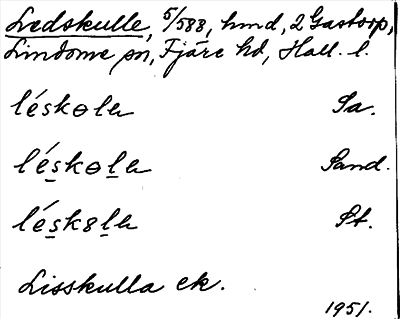 Ledskulle, 5/588, hmd, 2 Gastorp,
Lindome sn, Fjäre hd, Hall. l.
léskɵla Sa.
léskɵla Sand.
léskɵla St.
Lisskulla ek.
1951.